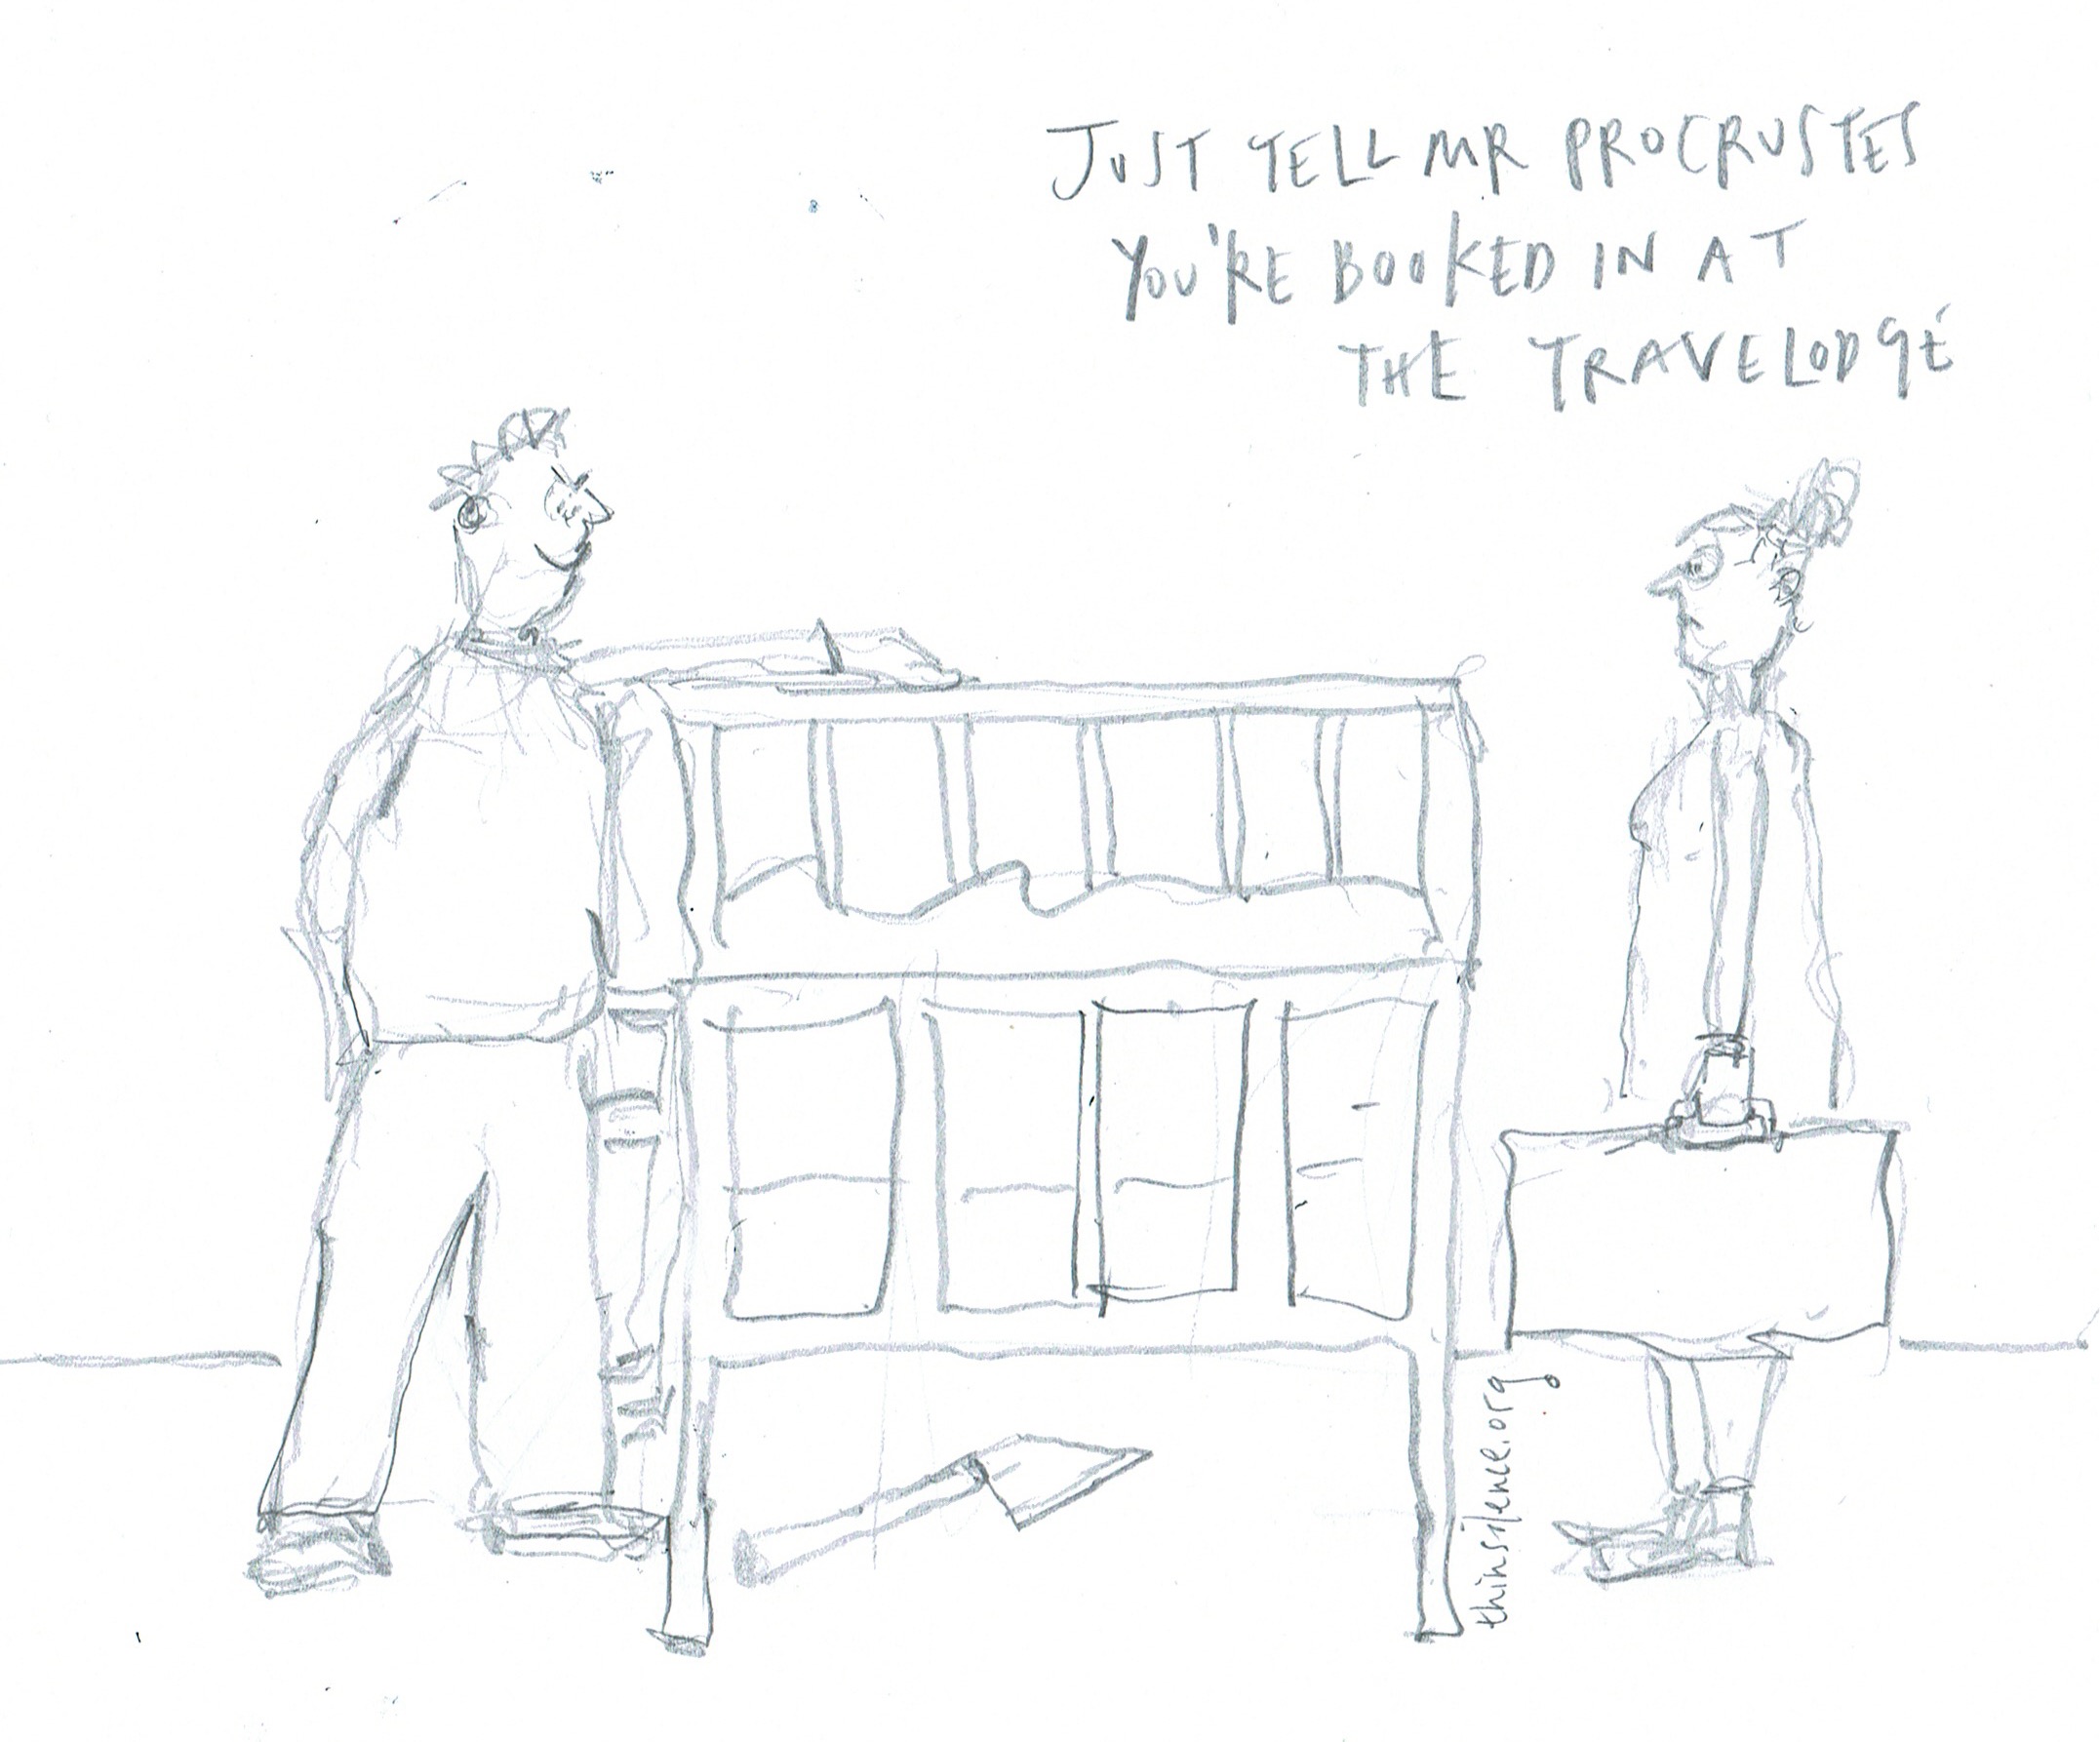 JUST TELL MR PROCRUSTES
YOU'RE BOOKED IN AT
THE TRAVELODGE
thinsilence.org